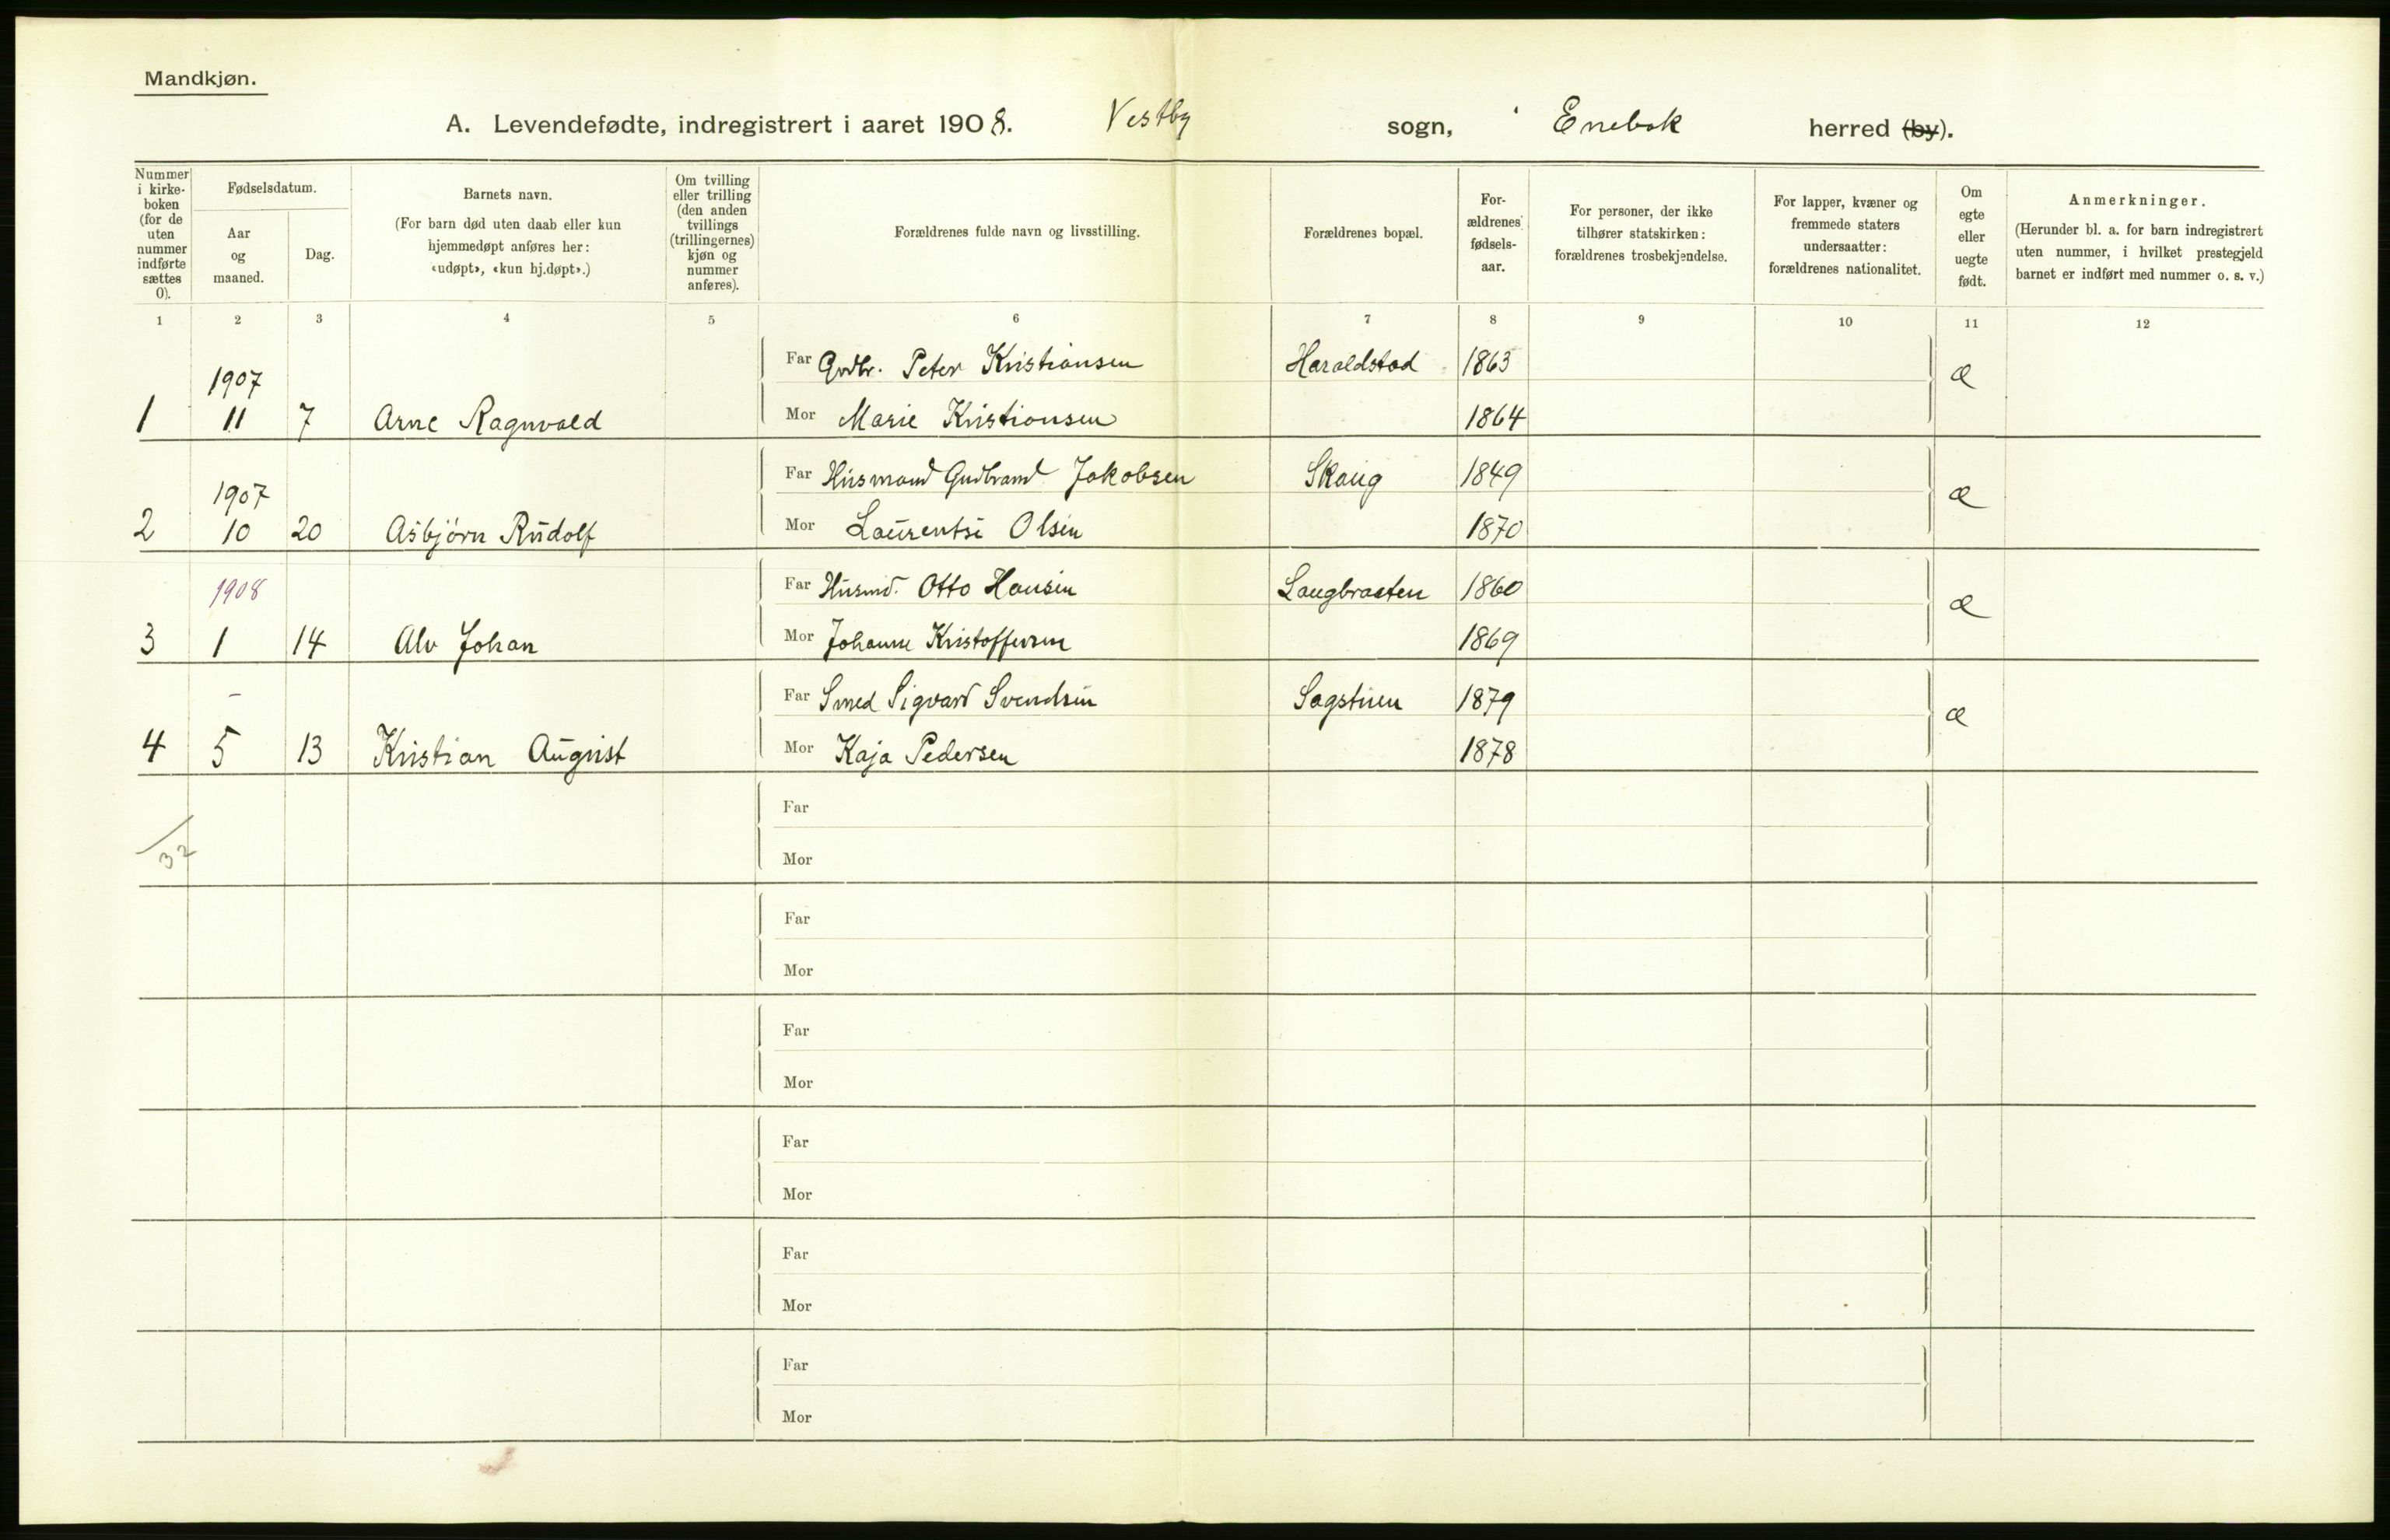 Mandkjøn.
A. Levendefødte, indregistrert i aaret 1908. Vestby sogn, i Enebak herred (by).
Nummer i kirke-boken (for de uten nummer indførte sættes 0).
Fødselsdatum.
Aar og maaned.
Dag.
Barnets navn.
(For barn død uten daab eller kun hjemmedøpt anføres her: «udøpt», «kun hj.døpt».)
Om tvilling eller trilling (den anden tvillings (trillingernes) kjøn og nummer anføres).
Forældrenes fulde navn og livsstilling.
Forældrenes bopæl.
For-ældrenes fødsels-aar.
For personer, der ikke tilhører statskirken: forældrenes trosbekjendelse.
For lapper, kvæner og fremmede staters undersaatter: forældrenes nationalitet.
Om egte eller uegte født.
Anmerkninger.
(Herunder bl. a. for barn indregistrert uten nummer, i hvilket prestegjeld barnet er indført med nummer o. s. v.)
1 2 3 4 5 6 7 8 9 10 11 12
1907
Far Grdbr. Peter Kristiansen Haraldstad 1863 æ
1 11 7 Arne Ragnvald Mor Marie Kristiansen 1864
1907
Far Husmand Gudbrand Jakobsen Skaug 1849 æ
2 10 20 Asbjörn Rudolf Mor Laurentse Olsen 1870
1908
Far Husmd. Otto Hansen Langbraaten 1860 æ
3 1 14 Alv Johan Mor Johanne Kristoffersen 1869
–
Far Smed Sigvard Svendsen Sagstuen 1879 æ
4 5 13 Kristian August Mor Kaja Pedersen 1878
Far
32
Mor
Far
Mor
Far
Mor
Far
Mor
Far
Mor
Far
Mor